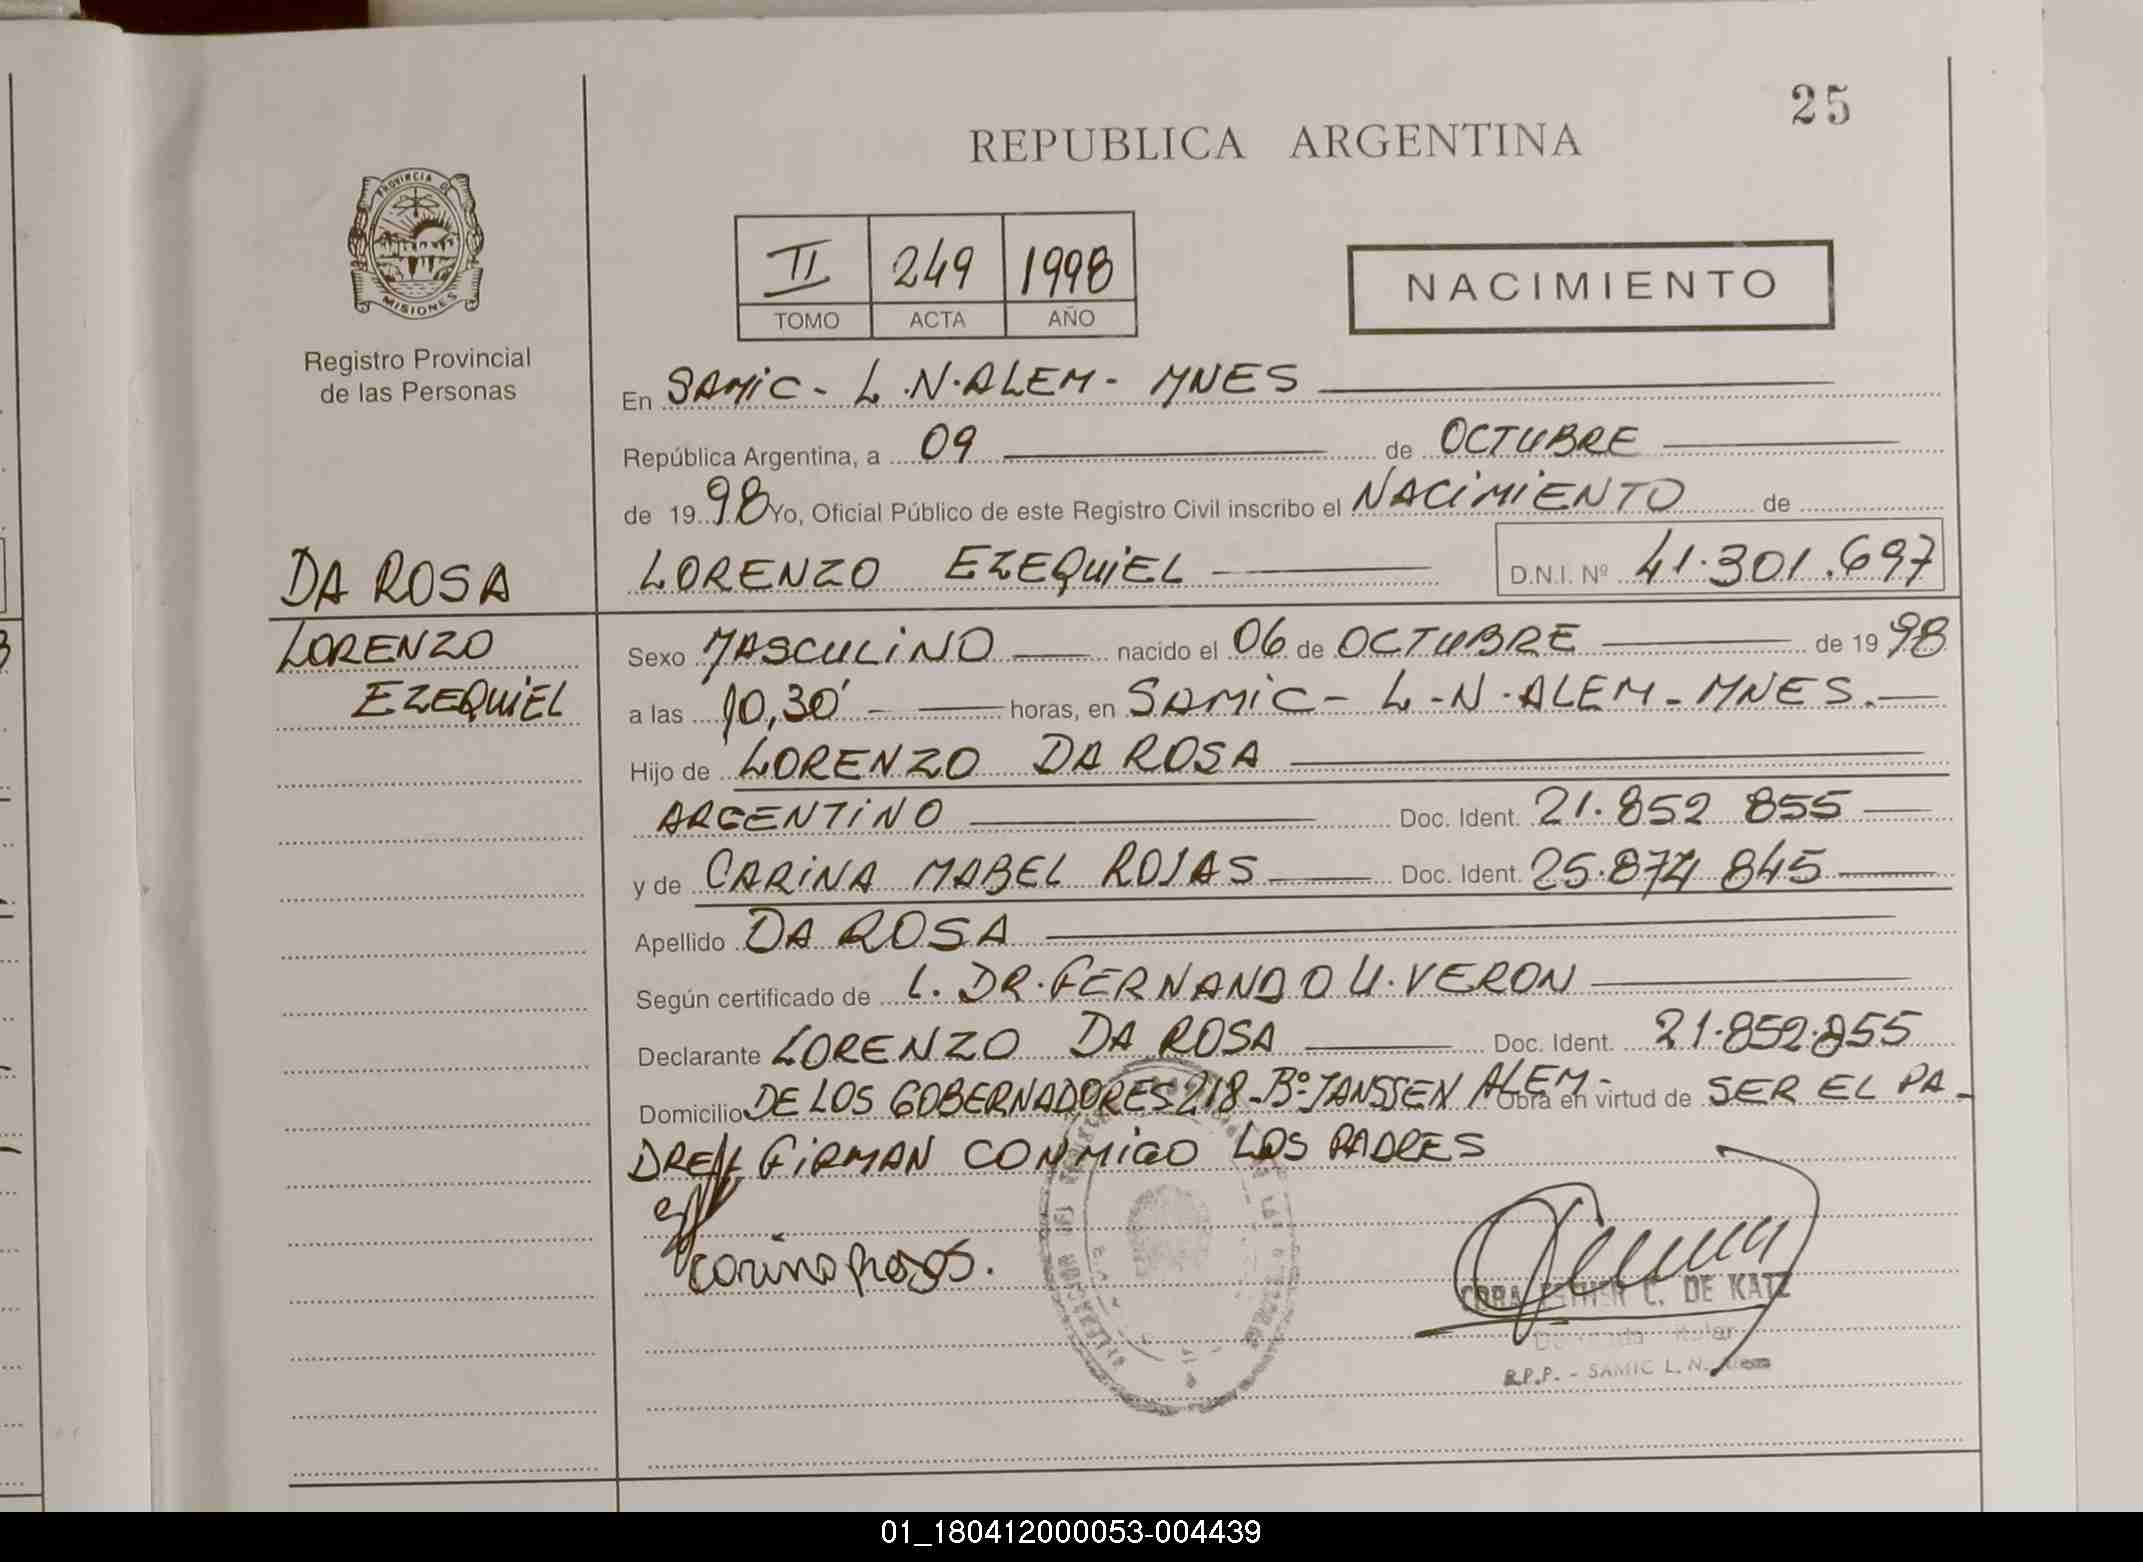 25
REPUBLICA ARGENTINA
PROVINCIA DE
MISIONES
Registro Provincial
de las Personas
II 249 1998
TOMO ACTA AÑO
NACIMIENTO
En SAMIC - L.N.ALEM - MNES
República Argentina, a 09 de OCTUBRE
de 1998 Yo, Oficial Público de este Registro Civil inscribo el NACIMIENTO de
DA ROSA
LORENZO EZEQUIEL D.N.I. Nº 41.301.697
LORENZO
EZEQUIEL
Sexo MASCULINO nacido el 06 de OCTUBRE de 1998
a las 10,30' horas, en SAMIC - L.N.ALEM - MNES.
Hijo de LORENZO DA ROSA
ARGENTINO Doc. Ident. 21.852 855
y de CARINA MABEL ROJAS Doc. Ident. 25.874 845
Apellido DA ROSA
Según certificado de L. DR. FERNANDO U. VERON
Declarante LORENZO DA ROSA Doc. Ident. 21.852.855
Domicilio DE LOS GOBERNADORES 218 - Bº JANSSEN ALEM - Obra en virtud de SER EL PA-
DRE// FIRMAN CONMIGO LOS PADRES
C. DE KATZ
R.P.P. - SAMIC L. N. Alem
01_180412000053-004439